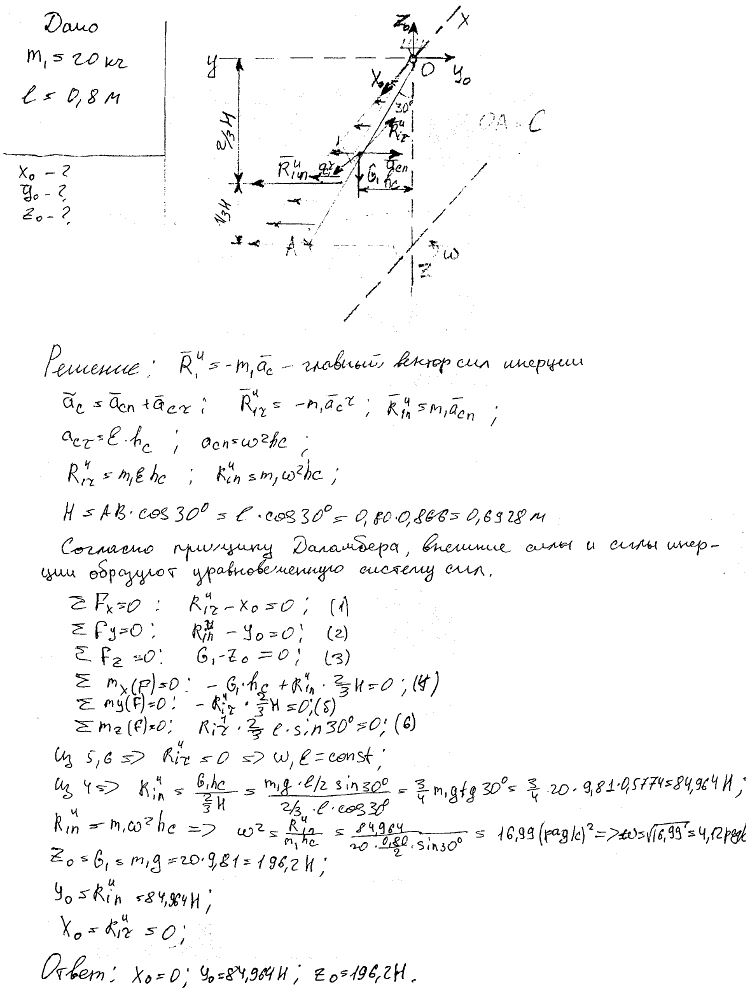 Дано
m₁ = 20 кг
l = 0,8 м
x₀ – ?
y₀ – ?
z₀ – ?
Z₀ X
y O y₀
X₀ 30°
2/3 H
R̄₁ₙᵘ G₁ h_c
1/3 H
A
ω
Z
Решение: R̄₁ᵘ = -m₁ā_c – главный вектор сил инерции
ā_c = ā_cn + ā_cτ ; R̄₁τᵘ = -m₁ā_cτ ; R̄₁ₙᵘ = m₁ā_cn ;
a_cτ = ε·h_c ; a_cn = ω²h_c ;
R₁τᵘ = m₁εh_c ; R₁ₙᵘ = m₁ω²h_c ;
H = AB·cos30° = l·cos30° = 0,80·0,866 = 0,6928 м
Согласно принципу Даламбера, внешние силы и силы инер-
ции образуют уравновешенную систему сил.
ΣFx = 0 : R₁τᵘ - X₀ = 0 ; (1)
ΣFy = 0 : R₁ₙᵘ - y₀ = 0 ; (2)
ΣFz = 0 : G₁ - Z₀ = 0 ; (3)
Σmx(F) = 0 : -G₁·h_c + R₁ₙᵘ·2/3 H = 0 ; (4)
Σmy(F) = 0 : -R₁τᵘ·2/3 H = 0 ; (5)
Σmz(F) = 0 : R₁τᵘ·2/3 l·sin30° = 0 ; (6)
Из 5,6 => R₁τᵘ = 0 => ω, ε = const ;
Из 4 => R₁ₙᵘ = G₁h_c / (2/3 H) = m₁g·l/2 sin30° / (2/3·l·cos30) = 3/4 m₁g tg30° = 3/4·20·9,81·0,5774 = 84,964 Н ;
R₁ₙᵘ = m₁ω²h_c => ω² = R₁ₙᵘ / (m₁h_c) = 84,964 / (20·0,80/2·sin30°) = 16,99 (рад/с)² => ω = √16,99 = 4,12 рад/с
Z₀ = G₁ = m₁g = 20·9,81 = 196,2 Н ;
y₀ = R₁ₙᵘ = 84,964 Н ;
X₀ = R₁τᵘ = 0 ;
Ответ: X₀ = 0 ; y₀ = 84,964 Н ; Z₀ = 196,2 Н.